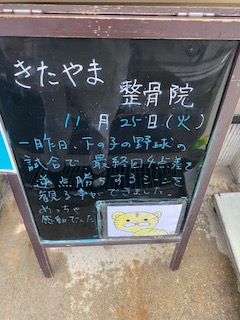 きたやま
整骨院
11月25日(火)
一昨日、下の子の野球の
試合で、最終回4点差を
逆点勝ちするところを
観る事ができました
めっちゃ
感動でした